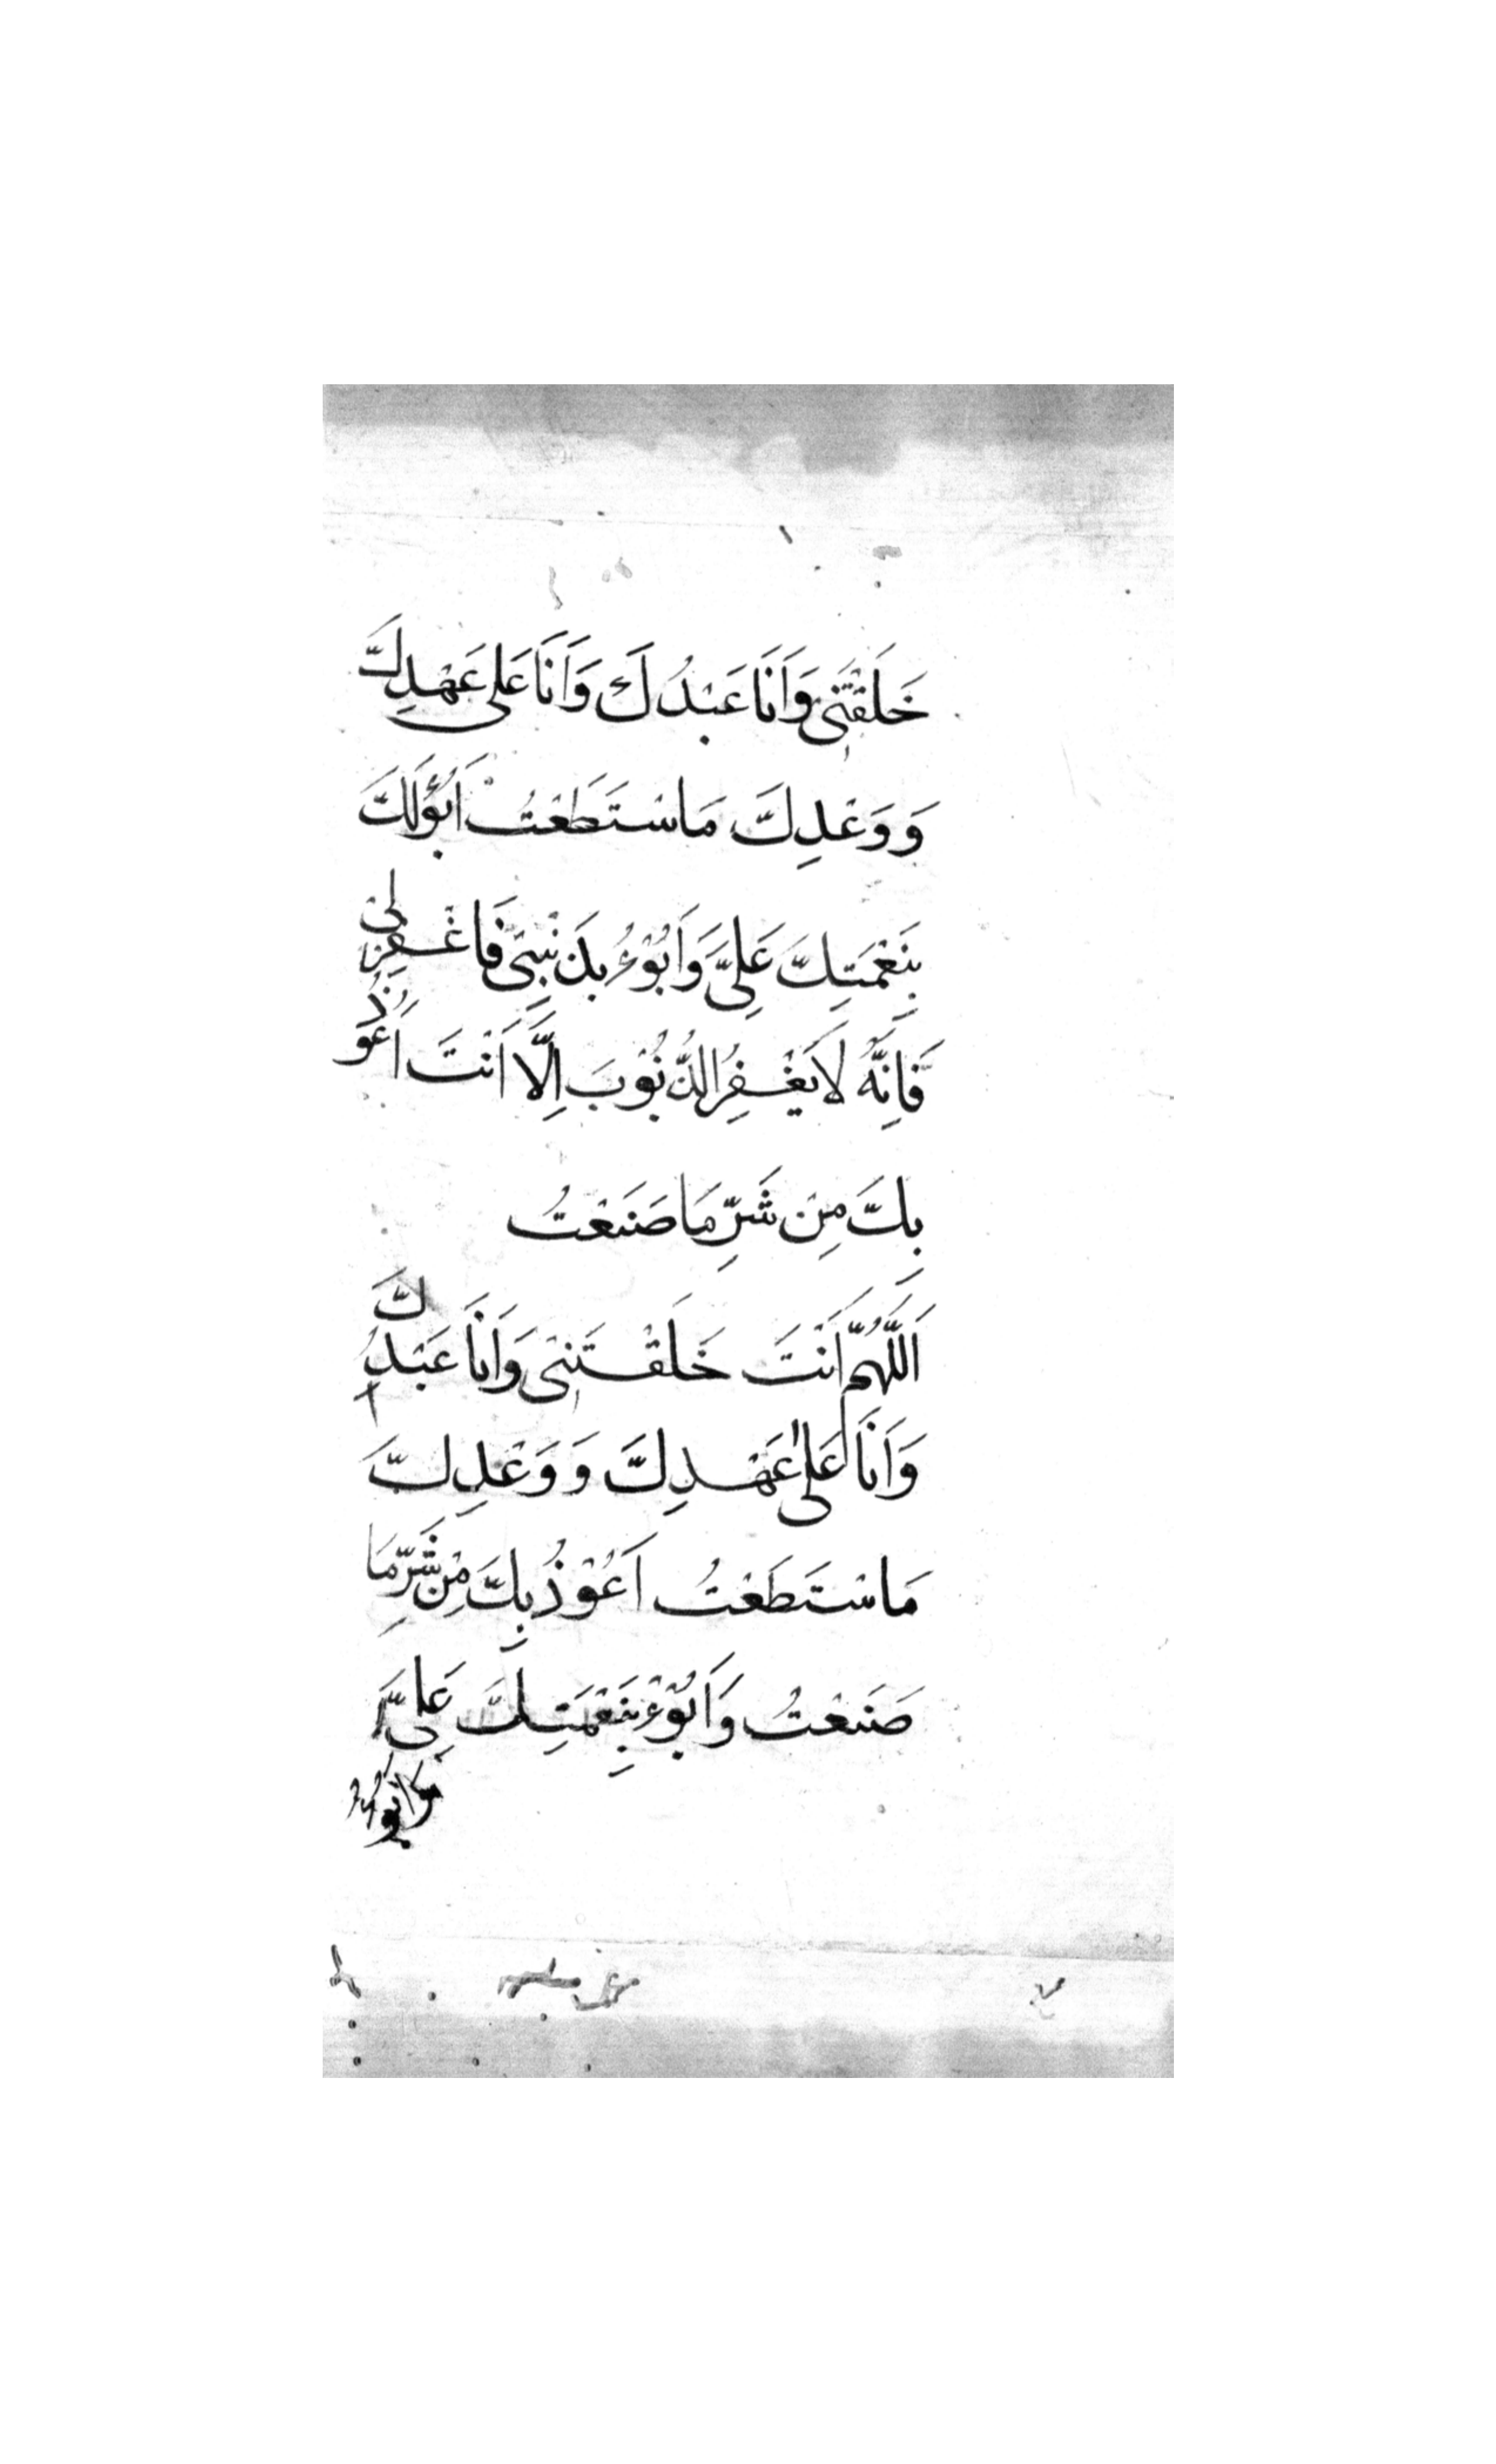 خَلَقْتَنِي وَاَنَا عَبْدُكَ وَاَنَا عَلَى عَهْدِكَ
وَ وَعْدِكَ مَاسْتَطَعْتُ اَبُؤُلَكَ
بِنَعْمَتِكَ عَلَيَّ وَاَبُوْءُ بِذَنْبِىْ فَاغْفِرْلِىْ
فَاِنَّهُ لَا يَغْفِرُ الذُّنُوْبَ اِلَّا اَنْتَ اَعُوْذُ
بِكَ مِنْ شَرِّ مَا صَنَعْتُ
اَللّٰهُمَّ اَنْتَ خَلَقْتَنِىْ وَاَنَا عَبْدُكَ
وَاَنَا عَلٰى عَهْدِكَ وَ وَعْدِكَ
مَاسْتَطَعْتُ اَعُوْذُ بِكَ مِنْ شَرِّ مَا
صَنَعْتُ وَاَبُوْءُ بِنَعْمَتِكَ عَلَىَّ
وَاَبُوْءُ